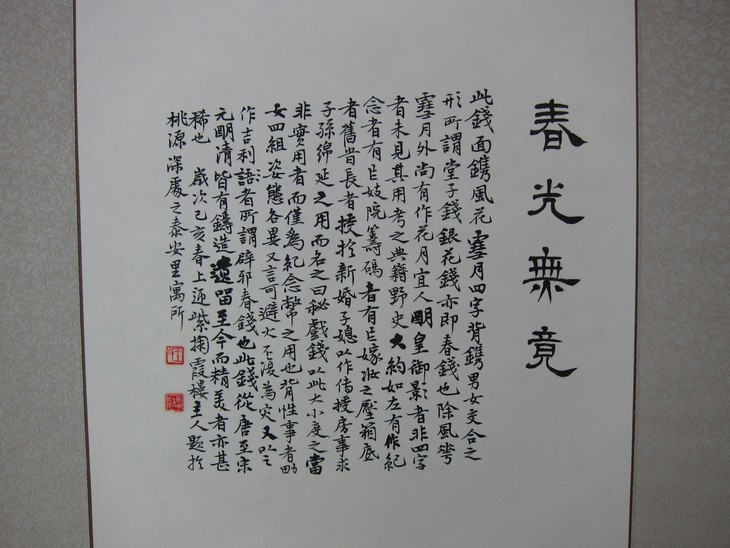 春光無竟
此錢面鐫風花雪月四字背鐫男女交合之
形所謂堂子錢銀花錢亦即春錢也除風花
雪月外尚有作花月宜人明皇御影者非四字
者未見其用考之典籍野史大約如左有作紀
念者有巨妓院籌碼者有巨嫁妝之壓箱底
者舊昔長者授於新婚子媳以作傳授房事求
子孫綿延之用而名之曰秘戲錢以此大小度之當
非實用者而僅為紀念幣之用也背性事者
女四組姿態各異又言可避火不復為灾又以之
作吉利語者所謂辟邪春錢也此錢從唐至宋
元明清皆有鑄造遺留至今而精美者亦甚
稀也 歲次己亥春上海紫掬霞樓主人題於
桃源深處之泰安里寓所